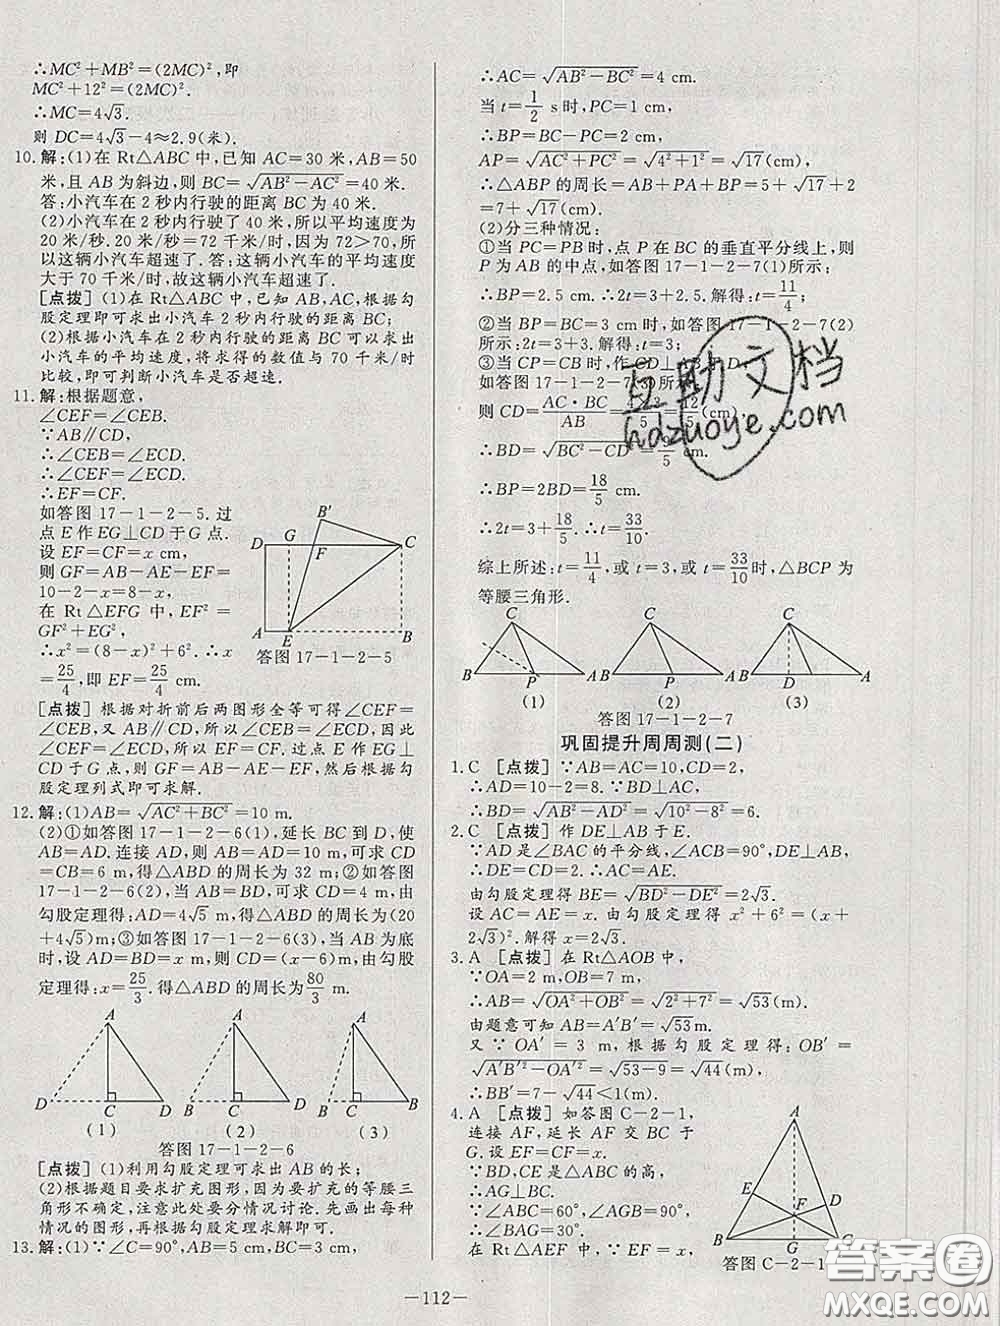 ∴MC²+MB²=(2MC)²,即
MC²+12²=(2MC)².
∴MC=4√3.
则 DC=4√3-4≈2.9(米).
10.解:(1)在 Rt△ABC 中,已知 AC=30 米,AB=50
米,且 AB 为斜边,则 BC=√(AB²-AC²)=40 米.
答:小汽车在 2 秒内行驶的距离 BC 为 40 米.
(2)小汽车在 2 秒内行驶了 40 米,所以平均速度为
20 米/秒.20 米/秒=72 千米/时,因为 72>70,所
以这辆小汽车超速了.答:这辆小汽车的平均速度
大于 70 千米/时,故这辆小汽车超速了.
[点拨] (1)在 Rt△ABC 中,已知 AB,AC,根据勾
股定理即可求出小汽车 2 秒内行驶的距离 BC;
(2)根据小汽车在 2 秒内行驶的距离 BC 可以求出
小汽车的平均速度,将求得的数值与 70 千米/时
比较,即可判断小汽车是否超速.
11.解:根据题意,
∠CEF=∠CEB.
∵AB∥CD,
∴∠CEB=∠ECD.
∴∠CEF=∠ECD.
∴EF=CF.
如答图 17-1-2-5. 过
点 E 作 EG⊥CD 于 G 点.
设 EF=CF=x cm,
则 GF=AB-AE-EF=
10-2-x=8-x,
在 Rt△EFG 中,EF²=
GF²+EG²,
∴x²=(8-x)²+6².∴x
=25/4,即 EF=25/4 cm.
B′
D G F C
A E B
答图 17-1-2-5
[点拨] 根据对折前后两图形全等可得∠CEF=
∠CEB,又 AB∥CD,所以∠CEB=∠ECD,所以
∠CEF=∠ECD,所以 EF=CF. 过点 E 作 EG⊥
CD 于 G,GF=AB-AE-EF,然后根据勾
股定理列式即可求解.
12.解:(1)AB=√(AC²+BC²)=10 m.
(2)①如答图 17-1-2-6(1),延长 BC 到 D,使
AB=AD.连接 AD,则 AB=AD=10 m,可求 CD
=CB=6 m,得△ABD 的周长为 32 m;②如答图
17-1-2-6(2),当 AB=BD,可求 CD=4 m,由
勾股定理得:AD=4√5 m,得△ABD 的周长为(20
+4√5)m;③如答图 17-1-2-6(3),当 AB 为底
时,设 AD=BD=x m,则 CD=(x-6)m,由勾股
定理得:x=25/3.得△ABD 的周长为80/3 m.
A A A
D C D B C D B C B
(1) (2) (3)
答图 17-1-2-6
[点拨] (1)利用勾股定理可求出 AB 的长;
(2)根据题目要求扩充图形,因为要扩充的等腰三
角形不确定,注意此处要分情况讨论. 先画出每种
情况的图形,再根据勾股定理求解即可.
13.解:(1)∵∠C=90°,AB=5 cm,BC=3 cm,
∴AC=√(AB²-BC²)=4 cm.
当 t=1/2 s时,PC=1 cm,
∴BP=BC-PC=2 cm,
AP=√(AC²+PC²)=√(4²+1²)=√17(cm),
∴△ABP 的周长=AB+PA+BP=5+√17+2
=7+√17(cm).
(2)分三种情况:
①当 PC=PB时,点 P 在 BC 的垂直平分线上,则
P 为 AB 的中点,如答图 17-1-2-7(1)所示;
∴BP=2.5 cm.∴2t=3+2.5.解得:t=11/4;
②当 BP=BC=3 cm 时,如答图 17-1-2-7(2)
所示:2t=3+3.解得:t=3;
③当 CP=CB 时,作 CD⊥AB于D,
如答图 17-1-2-7(3)所示
则 CD=AC·BC/AB=4×3/5=12/5(cm)
∴BD=√(BC²-CD²)=9/5 cm.
∴BP=2BD=18/5 cm.
∴2t=3+18/5.∴t=33/10.
综上所述:t=11/4,或 t=3,或 t=33/10时,△BCP 为
等腰三角形.
C C C
B P A B P A B D A
(1) (2) (3)
答图 17-1-2-7
巩固提升周周测(二)
1.C [点拨] ∵AB=AC=10,CD=2,
∴AD=10-2=8.∵BD⊥AC,
∴BD=√(AB²-AD²)=√(10²-8²)=6.
2.C [点拨] 作 DE⊥AB 于 E.
∵AD 是∠BAC 的平分线,∠ACB=90°,DE⊥AB,
∴DE=CD=2.∴AC=AE.
由勾股定理得 BE=√(BD²-DE²)=2√3.
设 AC=AE=x.由勾股定理得 x²+6²=(x+
2√3)².解得 x=2√3.
3.A [点拨] 在 Rt△AOB 中,
∵OA=2 m,OB=7 m,
∴AB=√(OA²+OB²)=√(2²+7²)=√53(m).
由题意可知 AB=A′B′=√53m.
又∵OA′=3 m,根据勾股定理得:OB′=
√(A′B′²-OA′²)=√(53-9)=√44(m),
∴BB′=7-√44<1(m).
4.A [点拨] 如答图 C-2-1,
连接 AF,延长 AF 交 BC 于
G.设 EF=CF=x.
∵BD,CE 是△ABC 的高,
∴AG⊥BC.
∵∠ABC=60°,∠AGB=90°,
∴∠BAG=30°.
在 Rt△AEF 中,∵EF=x,
A
E D
F
B G C
答图 C-2-1
—112—
互助文档
hdzuoye.com
答案圈
MXQE.COM